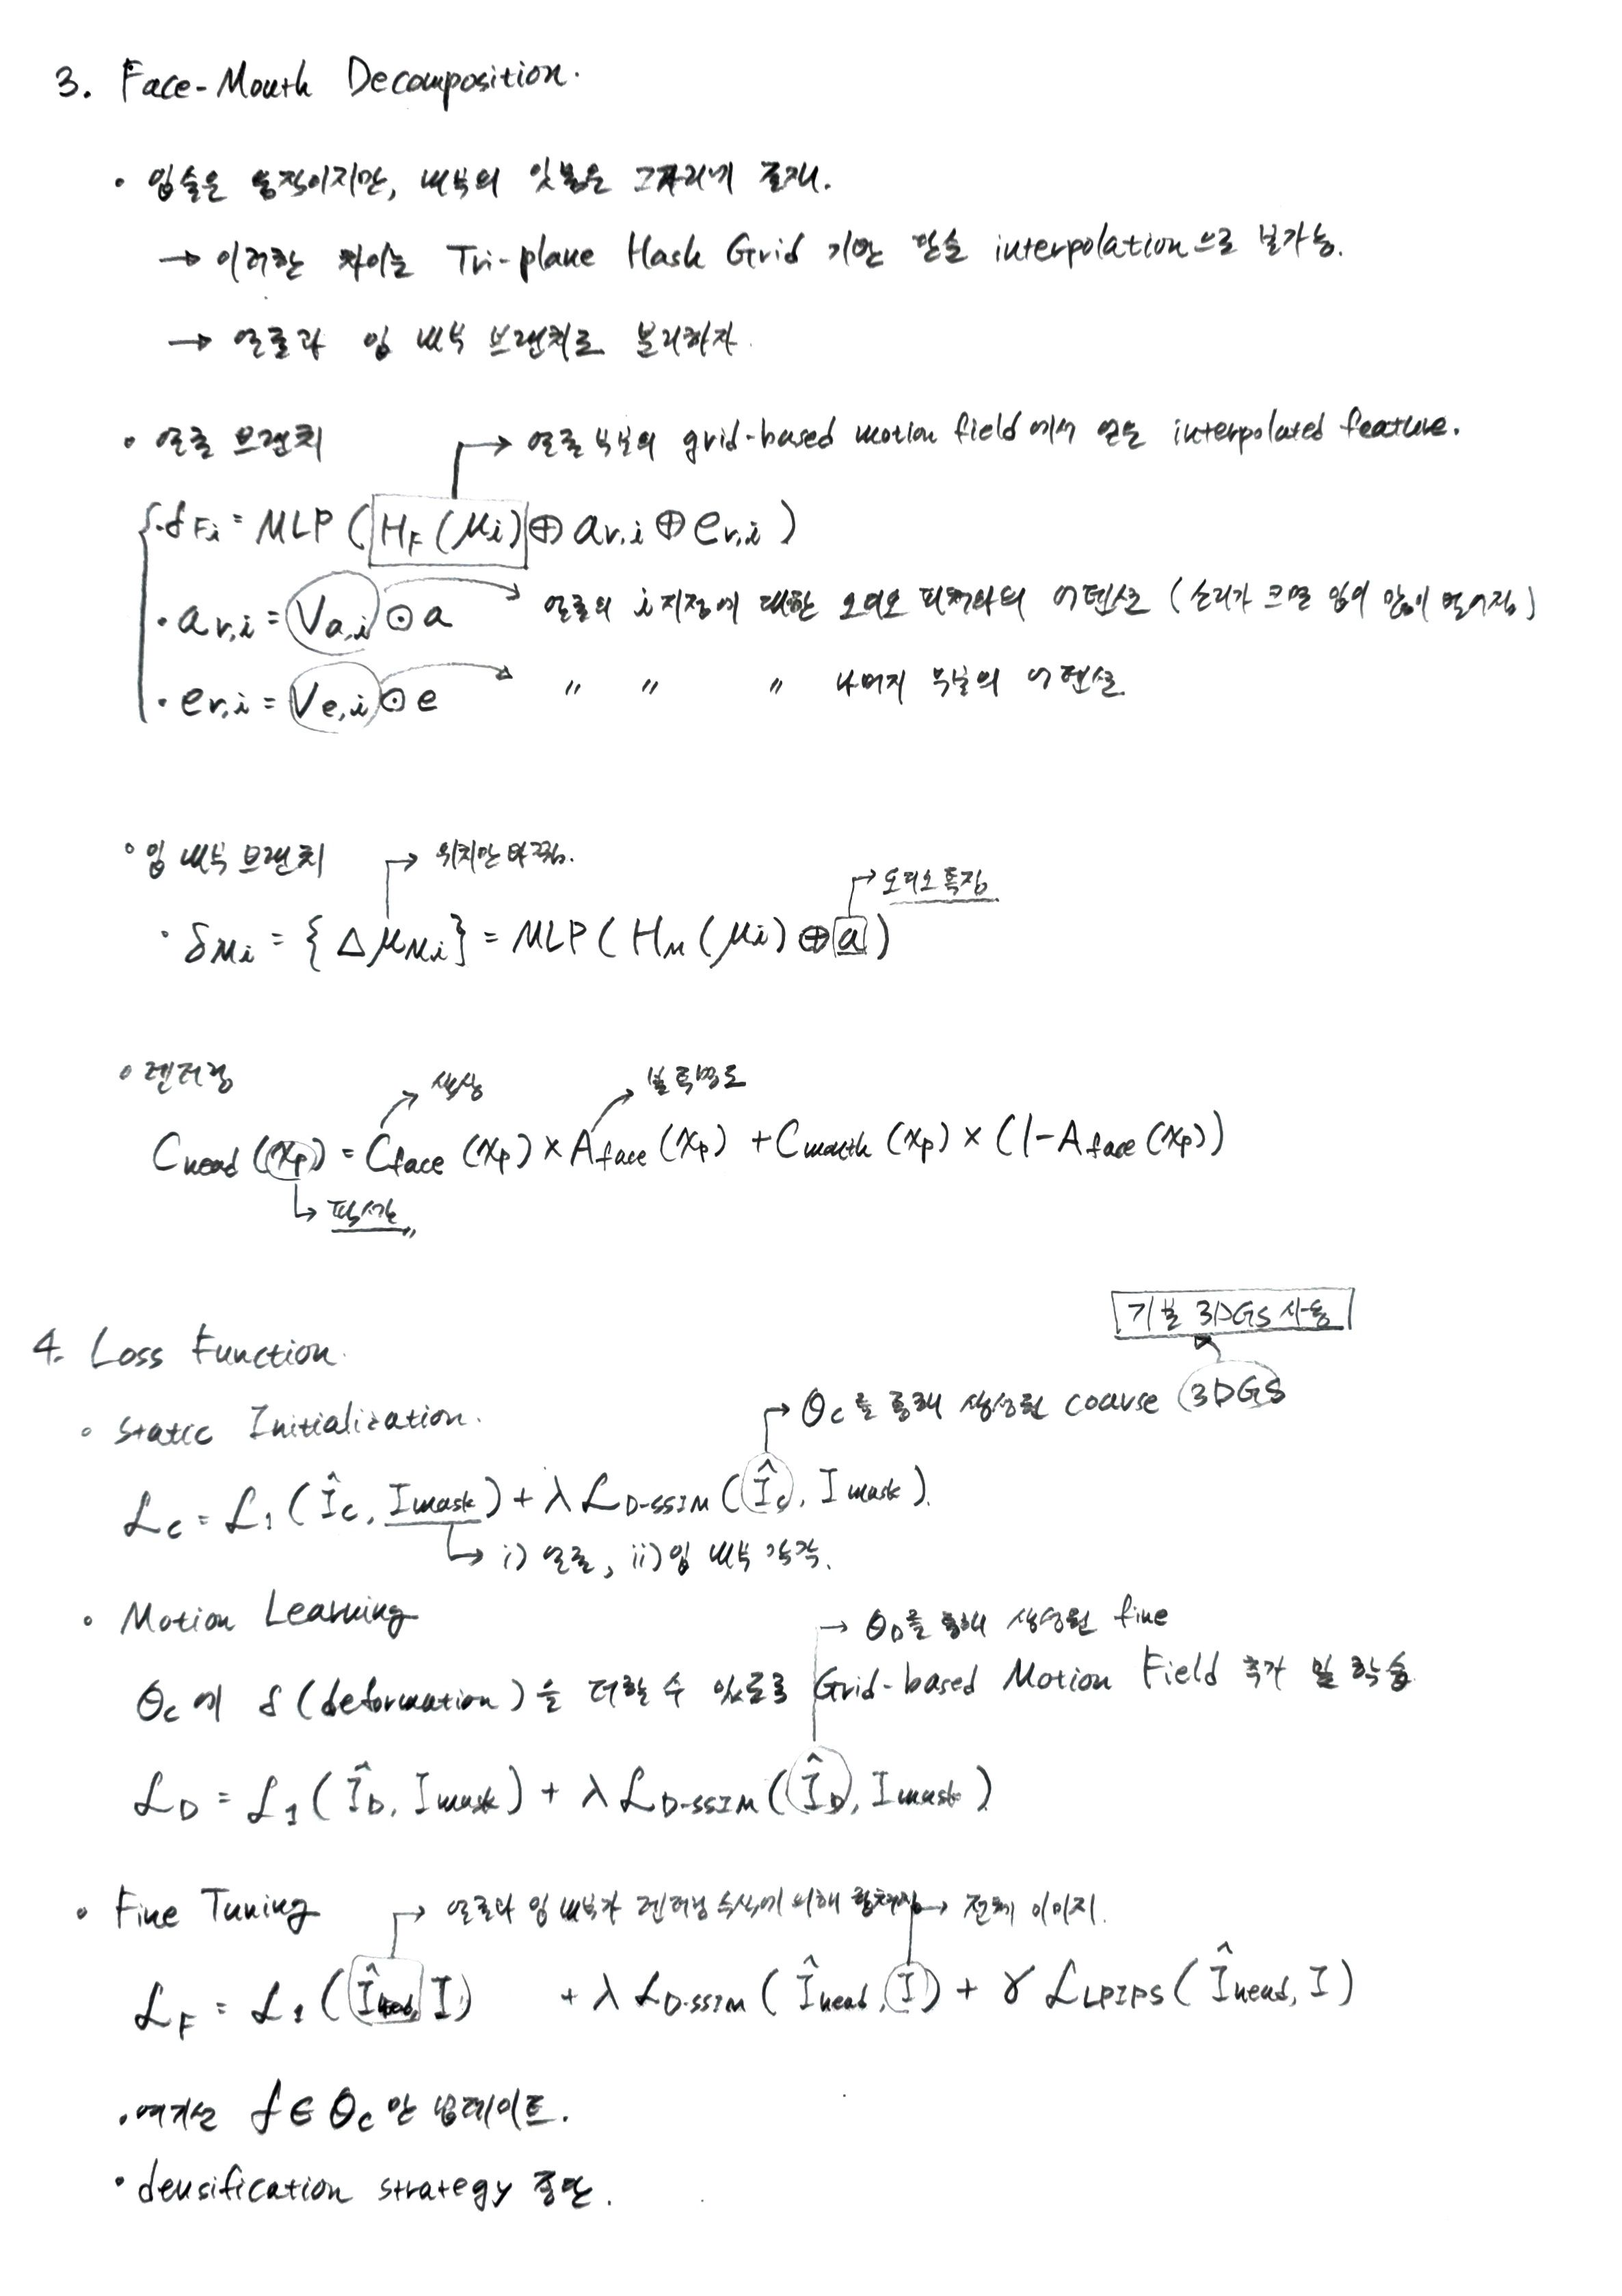 3. Face-Mouth Decomposition.
• 입술은 움직이지만, 내부의 잇몸은 그자리에 존재.
→ 이러한 차이는 Tri-plane Hash Grid 기반 단순 interpolation으로 불가능.
→ 얼굴과 입 내부 브랜치로 분리하자.
• 얼굴 브랜치
→ 얼굴 부분의 grid-based motion field에서 얻은 interpolated feature.
δFi = MLP (HF(μi) ⊕ ar,i ⊕ er,i)
• ar,i = Va,i ⊙ a
얼굴의 i 지점에 대한 오디오 피처와의 어텐션 (소리가 크면 입이 많이 벌어짐)
• er,i = Ve,i ⊙ e
〃 〃 〃 나머지 부분의 어텐션.
• 입 내부 브랜치
→ 위치만 바뀜.
→ 오디오 특징
• δMi = {ΔμMi} = MLP(HM(μi) ⊕ a)
• 렌더링
색상
불투명도
Chead (xp) = Cface (xp) × Aface (xp) + Cmouth (xp) × (1-Aface (xp))
↳ 픽셀값
4. Loss Function.
기본 3DGS 사용
• Static Initialization.
→ θc를 통해 생성된 coarse 3DGS
ℒC = ℒ1 (ÎC, Imask) + λ ℒD-SSIM (ÎC, Imask).
↳ i) 얼굴, ii) 입 내부 각각.
• Motion Learning
→ θD를 통해 생성된 fine
θc에 δ (deformation)을 더할 수 있도록 Grid-based Motion Field 추가 및 학습
ℒD = ℒ1 (ÎD, Imask) + λ ℒD-SSIM (ÎD, Imask)
• Fine Tuning
→ 얼굴과 입 내부가 렌더링 수식에 의해 합쳐짐
→ 전체 이미지.
ℒF = ℒ1 (Îhead, I) + λ ℒD-SSIM (Îhead, I) + γ ℒLPIPS (Îhead, I)
• 여기선 f ∈ θc만 업데이트.
• densification strategy 중단.